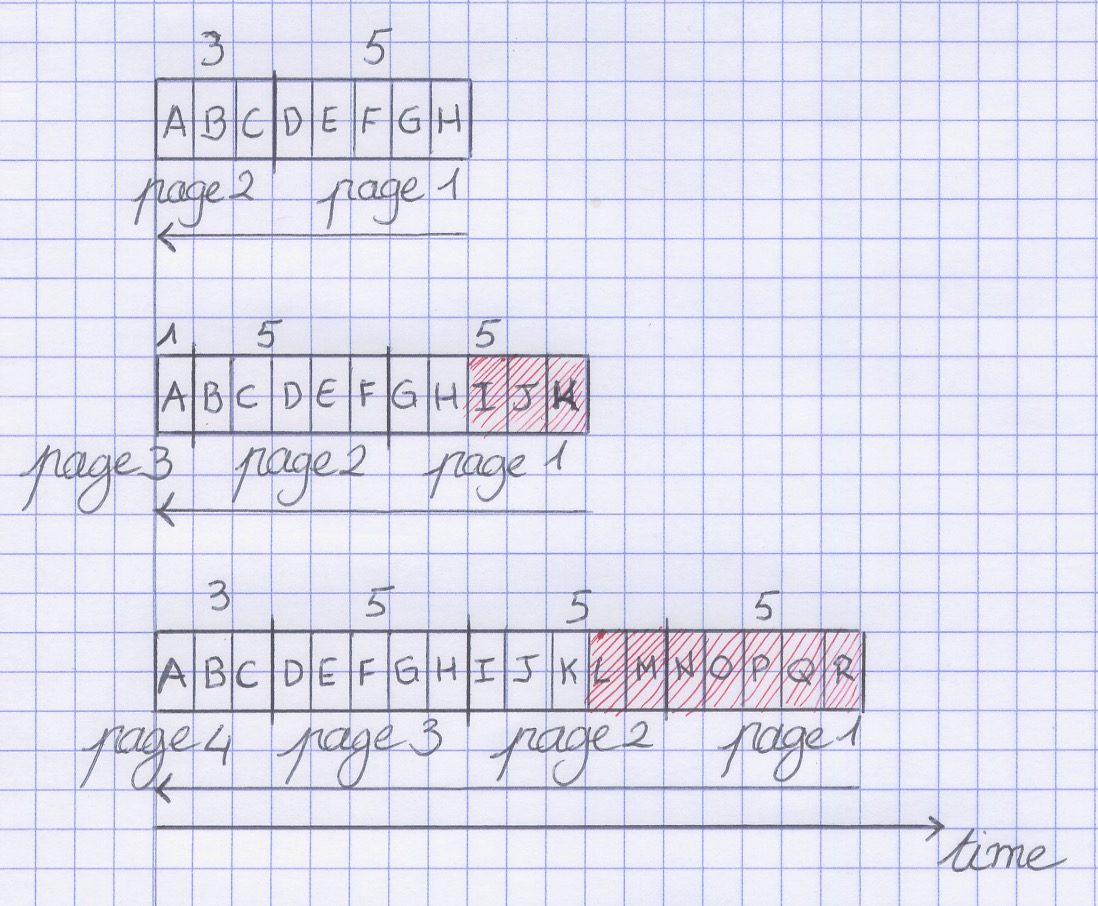 3 5
A B C D E F G H
page 2 page 1
1 5 5
A B C D E F G H I J K
page 3 page 2 page 1
3 5 5 5
A B C D E F G H I J K L M N O P Q R
page 4 page 3 page 2 page 1
time